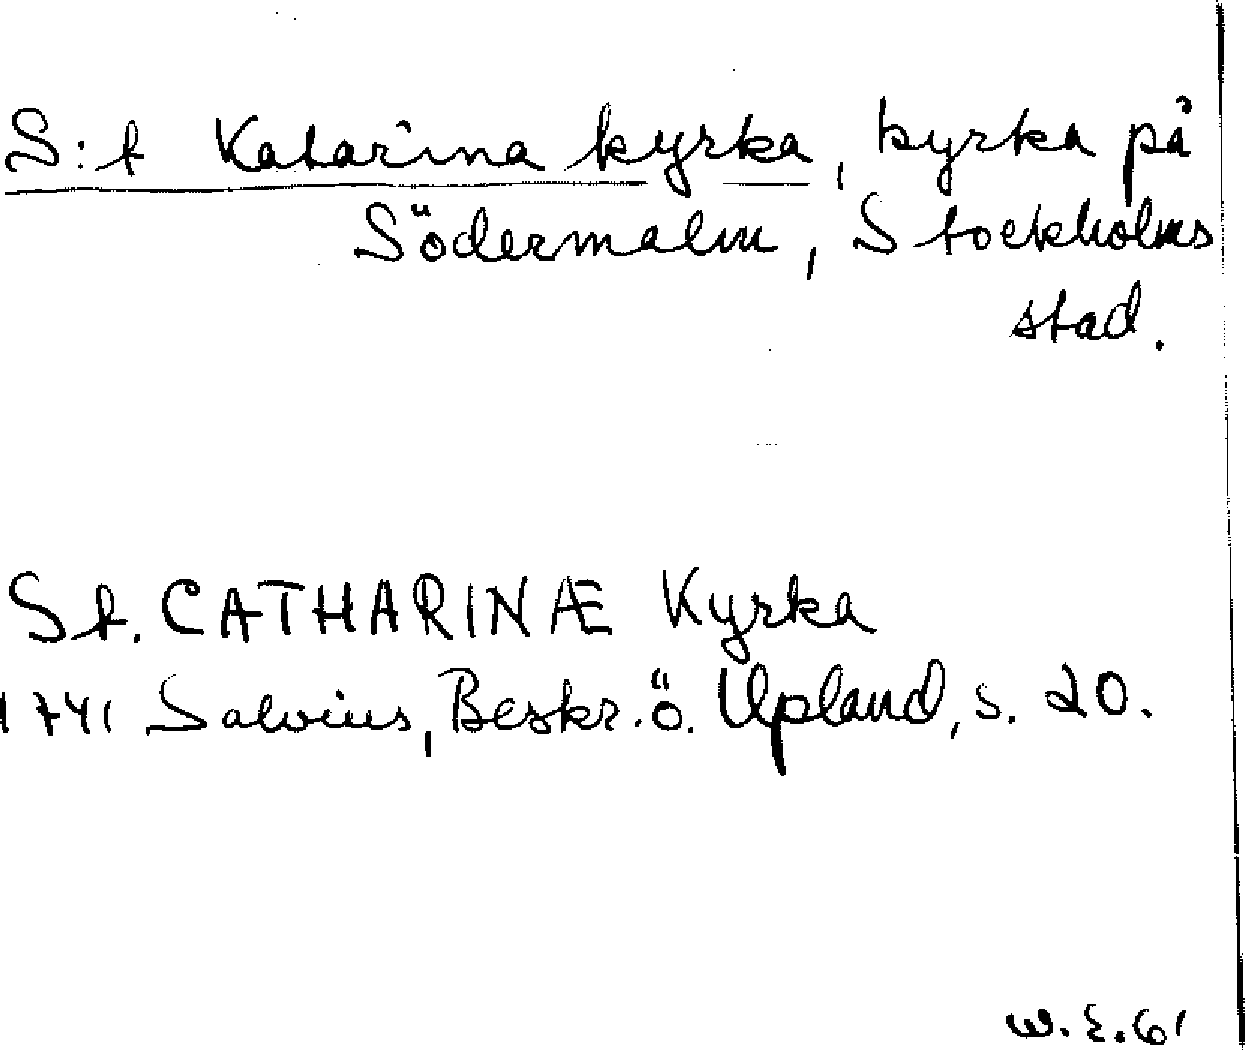 S:t Katarina kyrka, kyrka på
Södermalm, Stockholms
stad.
St. CATHARINÆ Kyrka
1741 Salvius, Beskr. ö. Upland, s. 20.
W. E. 61